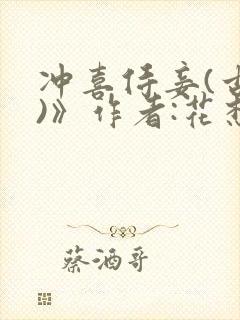 冲喜侍妾(
)》作者:花
蔡酒哥